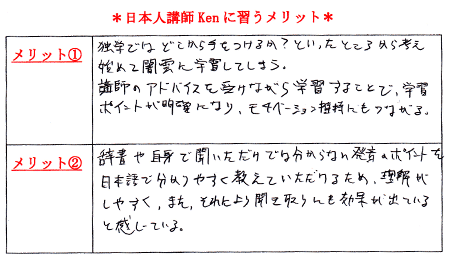 ＊日本人講師Kenに習うメリット＊
メリット①
独学ではどこから手をつけるか？といったところから考え
始めて闇雲に学習してしまう。
講師のアドバイスを受けながら学習することで、学習
ポイントが明確になり、モチベーション維持にもつながる。
メリット②
辞書や自身で聞いただけでは分からない発音のポイントを
日本語で分かりやすく教えていただけるため、理解が
しやすく、また、それにより聞き取りにも効果が出ている
と感じている。